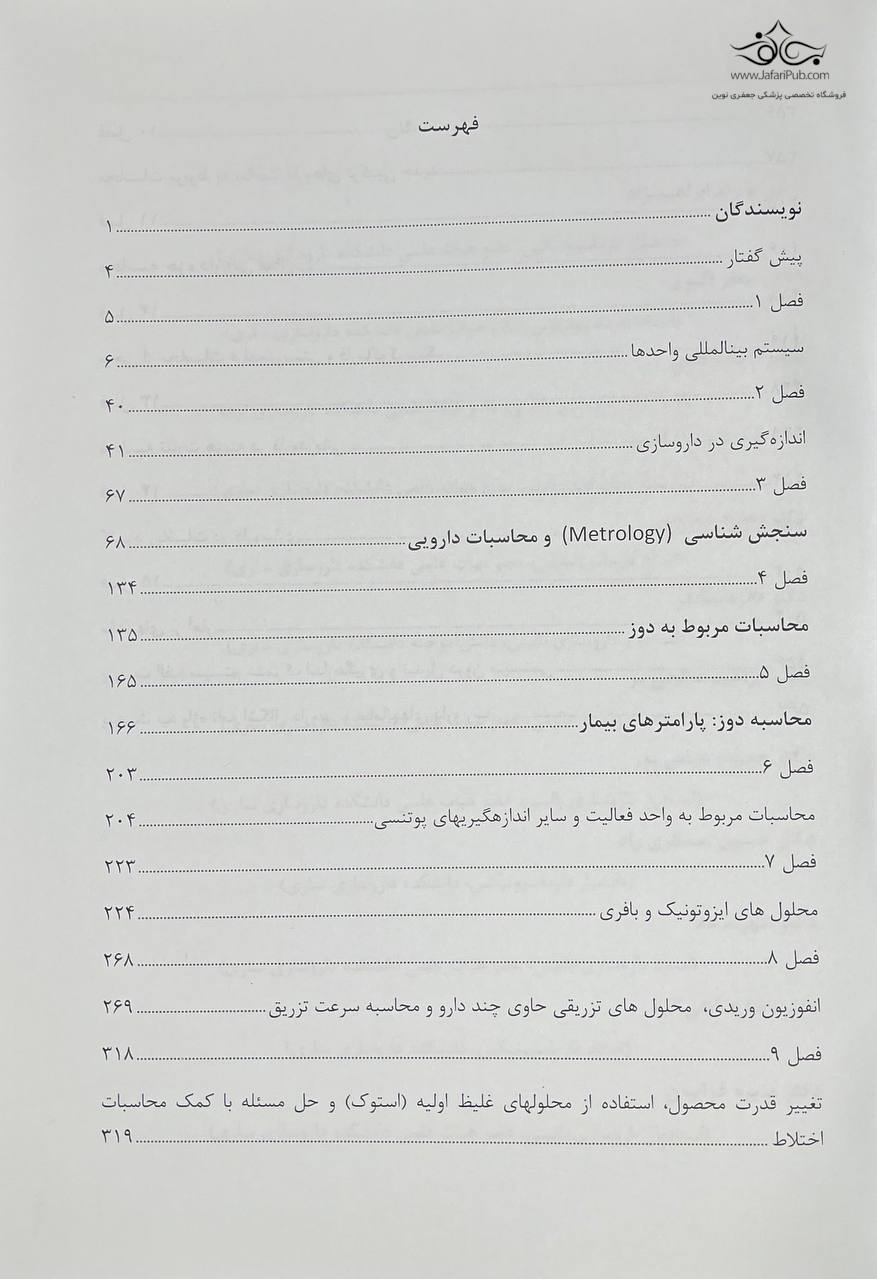 www.JafariPub.com
فروشگاه تخصصی پزشکی جعفری نوین
فهرست
نویسندگان ۱
پیش گفتار ۴
فصل ۱ ۵
سیستم بینالمللی واحدها ۶
فصل ۲ ۴۰
اندازه‌گیری در داروسازی ۴۱
فصل ۳ ۶۷
سنجش شناسی (Metrology) و محاسبات دارویی ۶۸
فصل ۴ ۱۳۴
محاسبات مربوط به دوز ۱۳۵
فصل ۵ ۱۶۵
محاسبه دوز: پارامترهای بیمار ۱۶۶
فصل ۶ ۲۰۳
محاسبات مربوط به واحد فعالیت و سایر اندازهگیریهای پوتنسی ۲۰۴
فصل ۷ ۲۲۳
محلول های ایزوتونیک و بافری ۲۲۴
فصل ۸ ۲۶۸
انفوزیون وریدی، محلول های تزریقی حاوی چند دارو و محاسبه سرعت تزریق ۲۶۹
فصل ۹ ۳۱۸
تغییر قدرت محصول، استفاده از محلولهای غلیظ اولیه (استوک) و حل مسئله با کمک محاسبات
اختلاط ۳۱۹